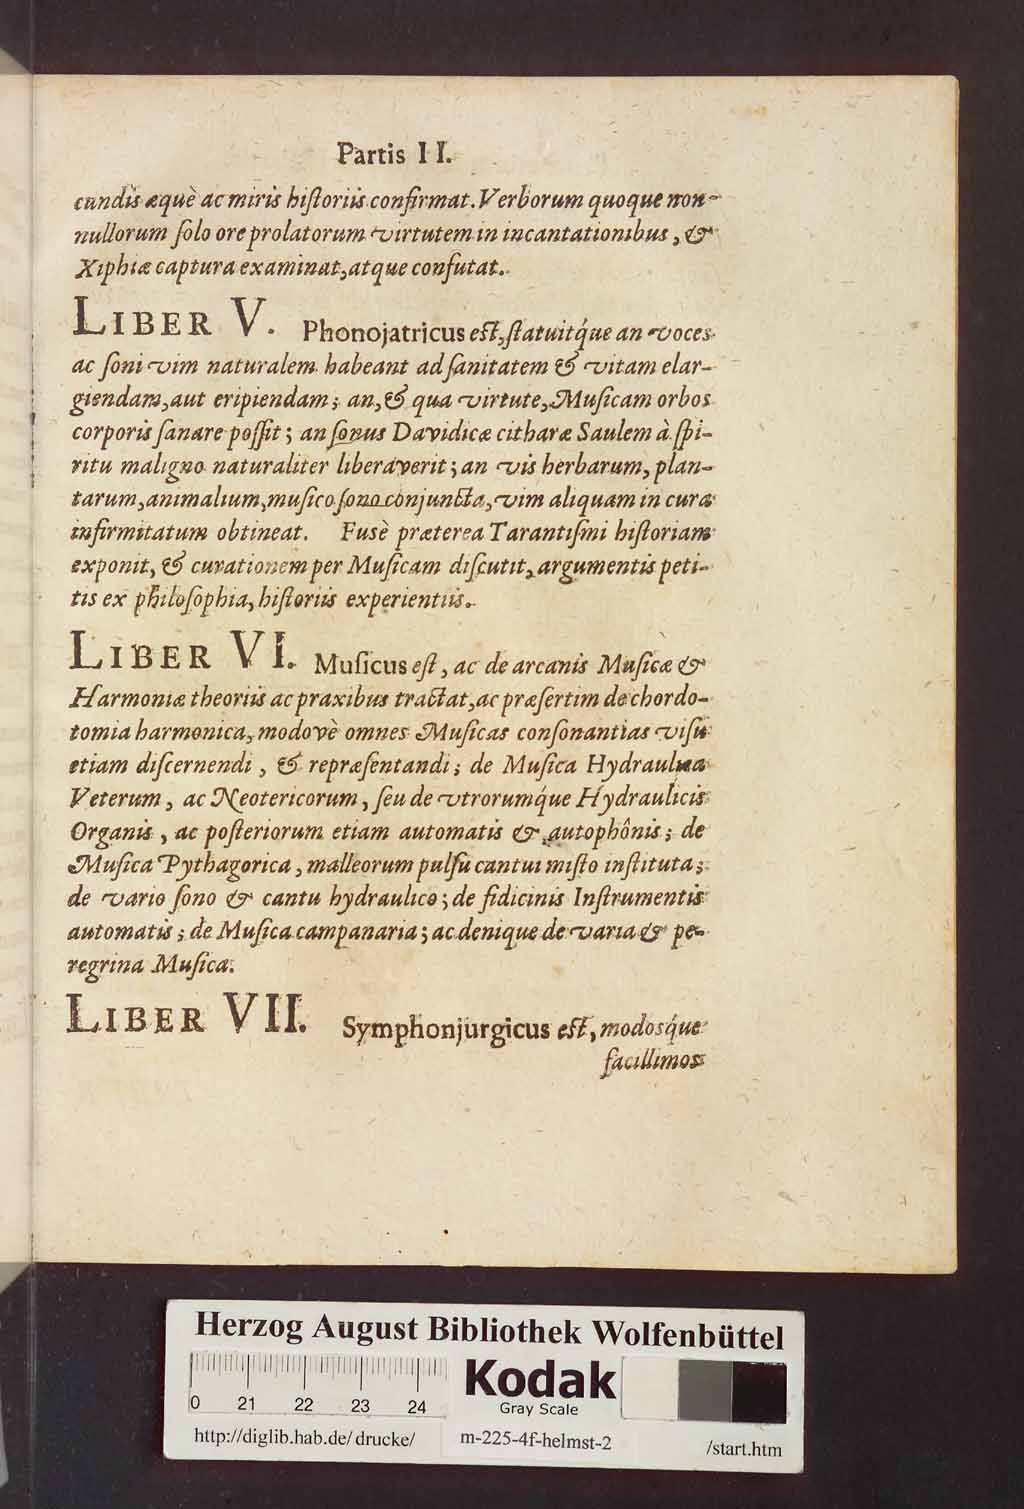 Partis II.
cundis æquè ac miris hiſtoriis confirmat. Verborum quoque non-
nullorum ſolo ore prolatorum virtutem in incantationibus, &
Xiphiæ captura examinat, atque confutat.
LIBER V. Phonojatricus eſt, ſtatuitq́ue an voces
ac ſoni vim naturalem habeant ad ſanitatem & vitam elar-
giendam, aut eripiendam; an, & qua virtute, Muſicam orbos
corporis ſanare poſſit; an ſonus Davidicæ citharæ Saulem à ſpi-
ritu maligno naturaliter liberaverit; an vis herbarum, plan-
tarum, animalium, muſico ſono conjuncta, vim aliquam in cura
infirmitatum obtineat. Fusè præterea Tarantiſmi hiſtoriam
exponit, & curationem per Muſicam diſcutit, argumentis peti-
tis ex philoſophia, hiſtoriis experientiis.
LIBER VI. Muſicus eſt, ac de arcanis Muſicæ &
Harmoniæ theoriis ac praxibus tractat, ac præſertim de chordo-
tomia harmonica, modovè omnes Muſicas conſonantias viſu
etiam diſcernendi, & repræſentandi; de Muſica Hydraulica
Veterum, ac Neotericorum, ſeu de vtrorumq́ue Hydraulicis
Organis, ac poſteriorum etiam automatis & autophônis; de
Muſica Pythagorica, malleorum pulſu cantui miſto inſtituta;
de vario ſono & cantu hydraulico; de fidicinis Inſtrumentis
automatis; de Muſica campanaria; ac denique de varia & pe-
regrina Muſica.
LIBER VII. Symphonjurgicus eſt, modosq́ue
facillimos
Herzog August Bibliothek Wolfenbüttel
0 21 22 23 24
Kodak
Gray Scale
http://diglib.hab.de/drucke/ m-225-4f-helmst-2 /start.htm